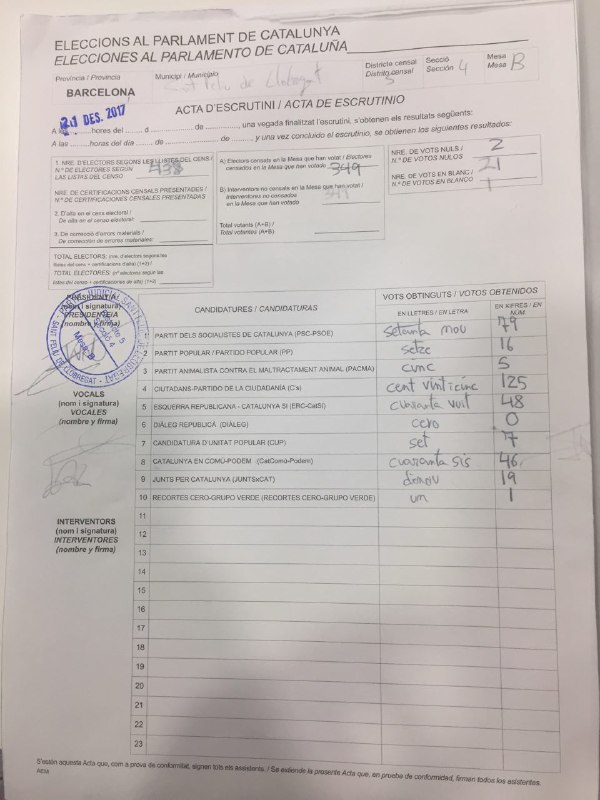 ELECCIONS AL PARLAMENT DE CATALUNYA
ELECCIONES AL PARLAMENTO DE CATALUÑA
Província / Provincia
BARCELONA
Municipi / Municipio
Feliu de Llobregat
Districte censal
Distrito censal
5
Secció
Sección 4
Mesa
Mesa B
21 DES. 2017
ACTA D'ESCRUTINI / ACTA DE ESCRUTINIO
A les hores del d de de , una vegada finalitzat l'escrutini, s'obtenen els resultats següents:
A las horas del día de de , y una vez concluido el escrutinio, se obtienen los siguientes resultados:
1. NRE. D'ELECTORS SEGONS LES LLISTES DEL CENS /
N.º DE ELECTORES SEGÚN
LAS LISTAS DEL CENSO
438
NRE. DE CERTIFICACIONS CENSALS PRESENTADES /
N.º DE CERTIFICACIONES CENSALES PRESENTADAS
2. D'alta en el cens electoral /
De alta en el censo electoral:
3. De correcció d'errors materials /
De corrección de errores materiales:
TOTAL ELECTORS: (nre. d'electors segons les
llistes del cens + certificacions d'alta) (1+2) /
TOTAL ELECTORES: (nº electores según las
listas del censo + certificaciones de alta) (1+2)
A) Electors censats en la Mesa que han votat / Electores
censados en la Mesa que han votado
349
B) Interventors no censats en la Mesa que han votat /
Interventores no censados
en la Mesa que han votado
Total votants (A+B) /
Total votantes (A+B)
NRE. DE VOTS NULS /
N.º DE VOTOS NULOS
2
NRE. DE VOTS EN BLANC /
N.º DE VOTOS EN BLANCO
1
PRESIDENT/A
(nom i signatura)
PRESIDENTE/A
(nombre y firma)
Mesa: B
SANT FELIU DE LLOBREGAT
VOCALS
(nom i signatura)
VOCALES
(nombre y firma)
INTERVENTORS
(nom i signatura)
INTERVENTORES
(nombre y firma)
CANDIDATURES / CANDIDATURAS
VOTS OBTINGUTS / VOTOS OBTENIDOS
EN LLETRES / EN LETRA
EN XIFRES / EN NÚM
1 PARTIT DELS SOCIALISTES DE CATALUNYA (PSC-PSOE) setanta nou 79
2 PARTIT POPULAR / PARTIDO POPULAR (PP) setze 16
3 PARTIT ANIMALISTA CONTRA EL MALTRACTAMENT ANIMAL (PACMA) cinc 5
4 CIUTADANS-PARTIDO DE LA CIUDADANÍA (C's) cent vinticinc 125
5 ESQUERRA REPUBLICANA - CATALUNYA SÍ (ERC-CatSí) cuaranta vuit 48
6 DIÀLEG REPUBLICÀ (DIÀLEG) cero 0
7 CANDIDATURA D'UNITAT POPULAR (CUP) set 7
8 CATALUNYA EN COMÚ-PODEM (CatComú-Podem) cuaranta sis 46
9 JUNTS PER CATALUNYA (JUNTSxCAT) dinou 19
10 RECORTES CERO-GRUPO VERDE (RECORTES CERO-GRUPO VERDE) um 1
11
12
13
14
15
16
17
18
19
20
21
22
23
S'estén aquesta Acta que, com a prova de conformitat, signen tots els assistents. / Se extiende la presente Acta que, en prueba de conformidad, firman todos los asistentes.